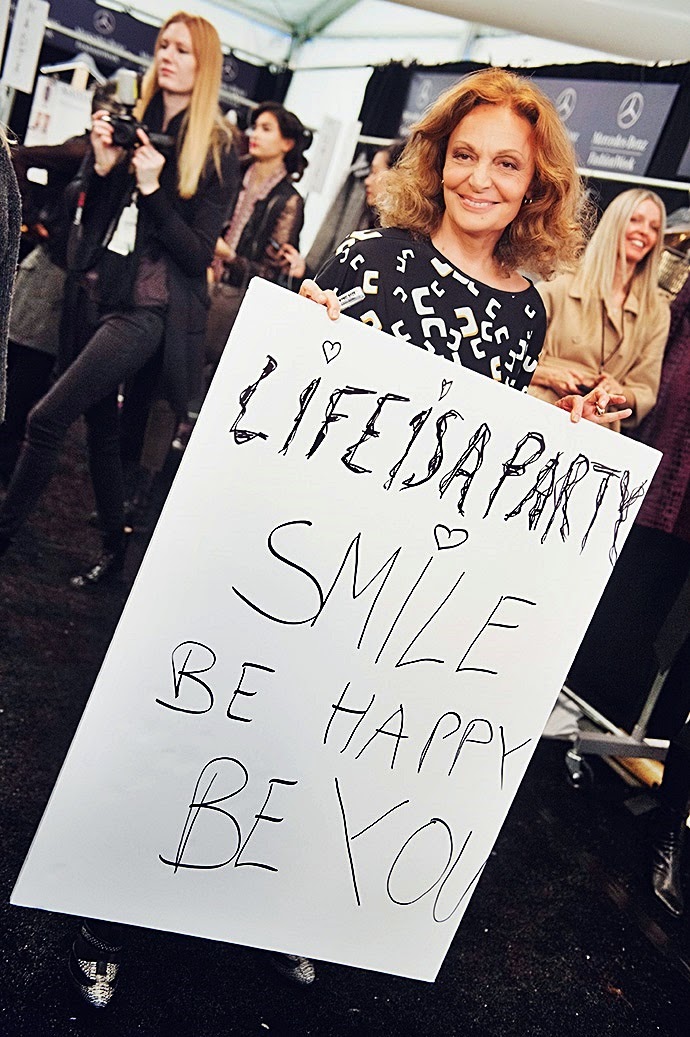 Mercedes-Benz
Fashion Week
LIFE IS A PARTY
SMILE
BE HAPPY
BE YOU